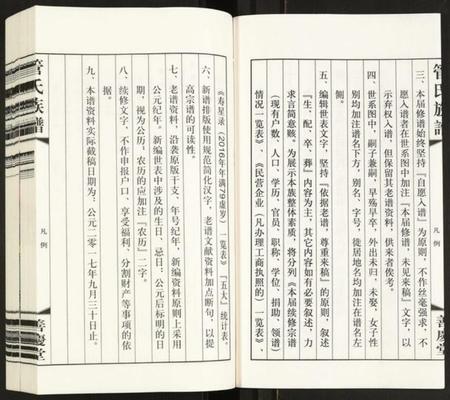 管氏族譜
凡例
善慶堂
三、本届修谱始终坚持『自愿入谱』为原则，不作丝毫强求，不
愿入谱者在世系图中加注『本届修谱，未见来稿』文字，以
示弃权入谱，但保留其老谱资料，供来者俟考。
四、世系图中，嗣子兼嗣，早殇早卒，外出未归，未娶，女子性
别均加注谱名下方，别名，字号，徙居地名均加注在谱名左
侧。
五、编辑世表文字，坚持『依据老谱，尊重来稿』的原则，叙述
『生，配，卒，葬』内容为主，其它内容如有必要叙述，力
求言简意赅，为展示本族整体素质，将分列《本届续修宗谱
（现有户数，人口、学历、官员、职称、学位、捐助、领谱）
情况一览表》、《民营企业（凡办理工商执照的）一览表》、
《寿星录（2016年年满79虚岁）一览表》『五大』统计表。
六、新谱排版使用规范简化汉字，老谱文献资料加点断句，以提
高宗谱的可读性。
七、老谱资料，沿袭原版干支、年号纪年，新编资料原则上采用
公元纪年。新编世表中涉及的生日、忌日：公元后标明的日
期，视为公历，农历的应加注『农历』二字。
八、续修文字，不作申报户口、享受福利，分割财产等事项的依
据。
九、本谱资料实际截稿日期为：公元二零一七年九月三十日止。
管氏族譜
凡例
善慶堂